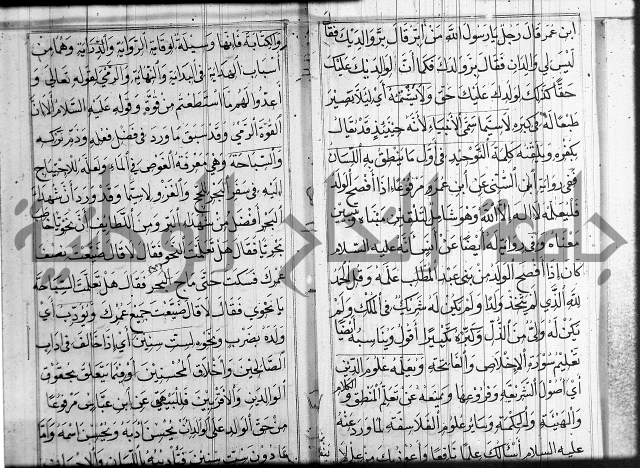 ابن عمر قال رجل يا رسول الله من ابر قال بر والديك فقال
ليس لي والدان فقال بر ولدك فكما ان لوالديك عليك
حقا كذلك لولدك عليك حق ولا يشتمه اي ليلا يصير
طبعا له في كبره لا سيما سمي الانبياء لانه حينيذ قد يقال
بكفره ويلقنه كلمة التوحيد في اول ما ينطق به اللسان
ففي رواية ابن السني عن ابن عمر مرفوعا اذا افصح الولد
فليعلمه لا اله الا الله وهو شامل لتلقين مبناه وتبيين
معناه وفي رواية له ايضا عن انس انه عليه السلام
كان اذا افصح الولد من بني عبد المطلب علمه وقل الحمد
لله الذي لم يتخذ ولدا ولم يكن له شريك في الملك ولم
يكن له ولي من الذل وكبره تكبيرا اقول ويناسبه ايضا
تعليم سورة الاخلاص والفاتحة ويعلمه علوم الدين
اي اصول الشريعة وفروعها ويمنعه عن تعلم المنطق والكلام
والهيئة والحكمة وساير علوم الفلاسفة لما ورد عنه
عليه السلام اسألك علما نافعا واعوذ بك من علم لا
والكتابة فانها وسيلة لوقاية الرواية والدراية وهما من
اسباب الهداية في البداية والنهاية والرمي لقوله تعالى و
اعدوا لهم ما استطعتم من قوة وقوله عليه السلام الا ان
القوة الرمي وقد سبق ما ورد في فضل فعله وذم تركه
والسباحة وهي معرفة الغوص في الماء ولعله للاحتياج
اليه في سفر البحر للحج والغزو لا سيما وقد ورد ان شهداء
البحر افضل من شهداء البر ومن اللطايف ان نحويا خاصم
بحريا فقال هل تعلمت النحو فقال لا قال ضيعت نصف
عمرك فسكت حتى ماج البحر فقال هل تعلمت السباحة
يا نحوي فقال لا قال ضيعت جميع عمرك ويؤدب اي
ولده بضرب ونحوه لست سنين اي اذا خالف في اداب
الصالحين واخلاق المحسنين او فيما يتعلق بحقوق
الوالدين والاقربين فللبيهقي عن ابن عباس مرفوعا
من حق الولد على الوالد ان يحسن ادبه ويحسن اسمه واما
جامعة النجاح الوطنية